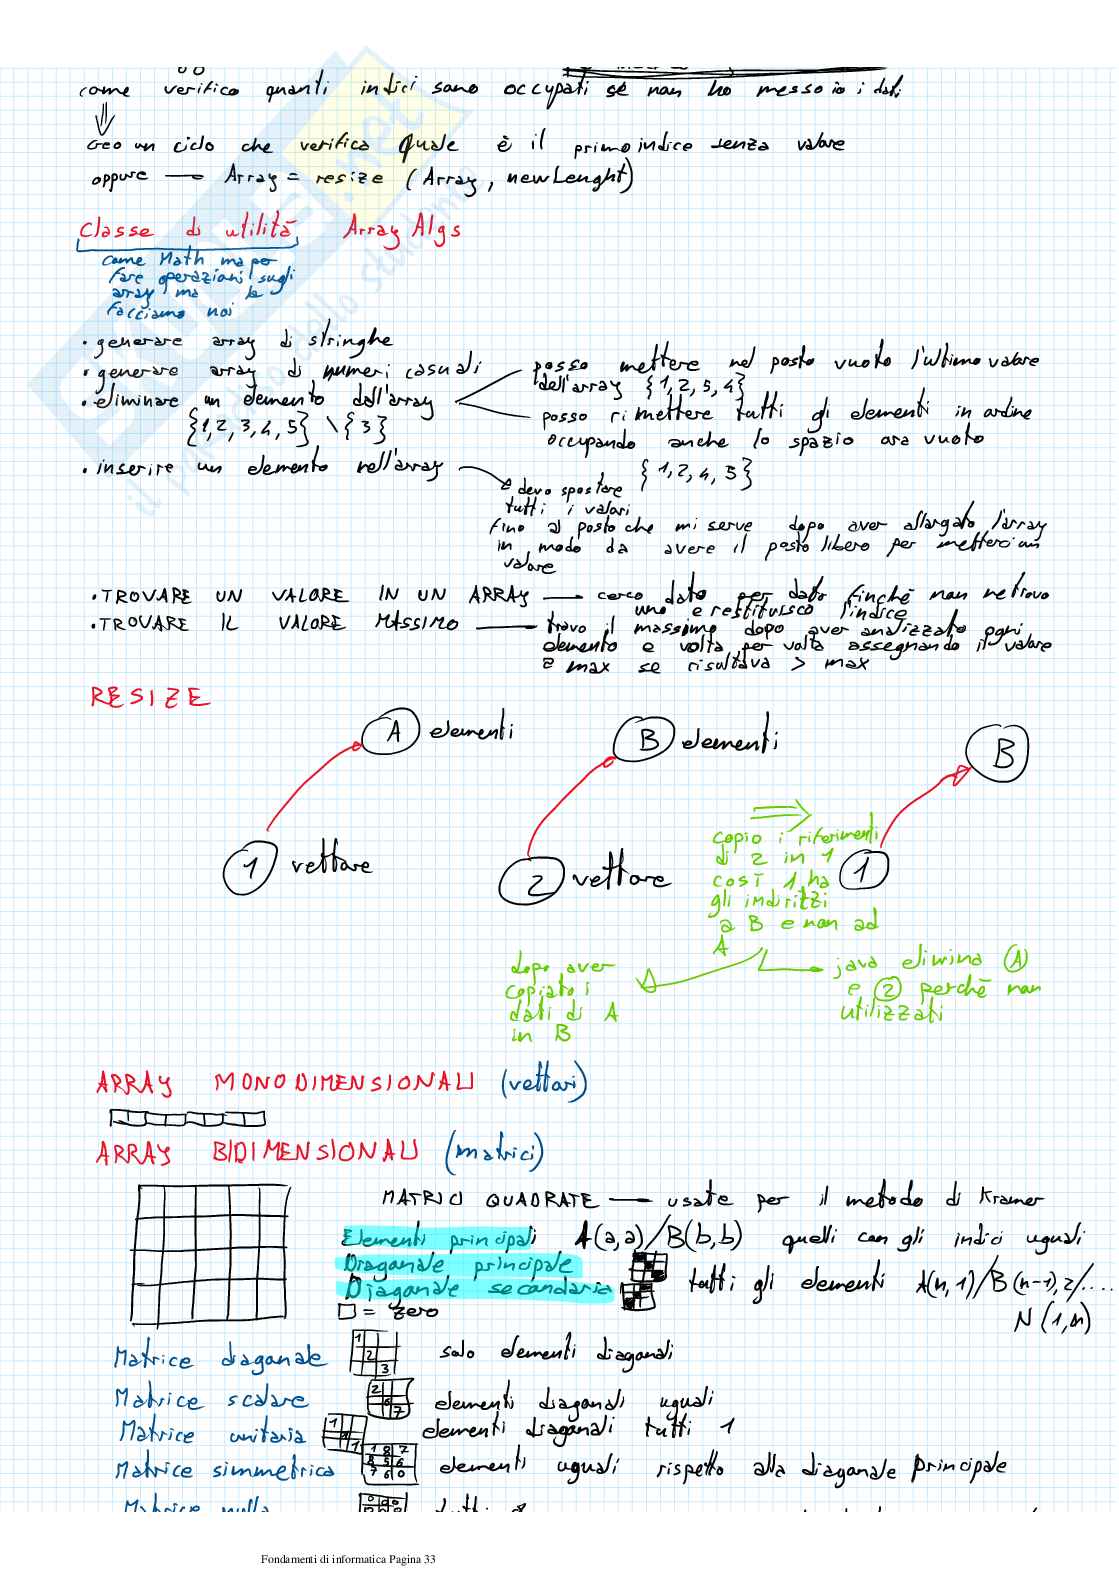 come verifico quanti indici sono occupati se non ho messo io i dati
Creo un ciclo che verifica quale è il primo indice senza valore
oppure → Array = resize (Array, newLenght)
Classe di utilità ArrayAlgs
come Math ma per
fare operazioni sugli
array ma le
facciamo noi
• generare array di stringhe
• generare array di numeri casuali
• eliminare un elemento dell'array
{1,2,3,4,5} \ {3}
posso mettere nel posto vuoto l'ultimo valore
dell'array {1,2,5,4}
posso rimettere tutti gli elementi in ordine
occupando anche lo spazio ora vuoto
{1,2,4,5}
• inserire un elemento nell'array
devo spostare
tutti i valori
fino al posto che mi serve dopo aver allargato l'array
in modo da avere il posto libero per metterci un
valore
• TROVARE UN VALORE IN UN ARRAY — cerco dato per dato finchè non ne trovo
uno e restituisco l'indice
• TROVARE IL VALORE MASSIMO — trovo il massimo dopo aver analizzato ogni
elemento e volta per volta assegnando il valore
a max se risultava > max
RESIZE
A elementi
B elementi
B
1 vettore
2 vettore
1
copio i riferimenti
di 2 in 1
così 1 ha
gli indirizzi
a B e non ad
A
dopo aver
copiato i
dati di A
in B
java elimina A
e 2 perchè non
utilizzati
ARRAY MONODIMENSIONALI (vettori)
ARRAY BIDIMENSIONALI (matrici)
MATRICI QUADRATE — usate per il metodo di Kramer
Elementi principali A(a,a)/B(b,b) quelli con gli indici uguali
Diagonale principale
Diagonale secondaria tutti gli elementi A(n,1)/B(n-1),2/....
N(1,n)
□ = zero
Matrice diagonale 1 2 3 solo elementi diagonali
Matrice scalare elementi diagonali uguali
Matrice unitaria elementi diagonali tutti 1
Matrice simmetrica elementi uguali rispetto alla diagonale principale
Matrice nulla
Fondamenti di informatica Pagina 33